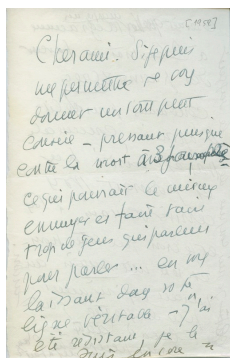 [1958]
Cher ami. Si je puis
me permettre de vous
donner un tout petit
conseil - pensant puisque
contre la mort
ce qui pourrait le mieux
ennuyer et faire taire
trop de gens qui parlent
pour parler ... en vous
laissant dans votre
ligne véritable - J'ai
été résistant je le
suis encore